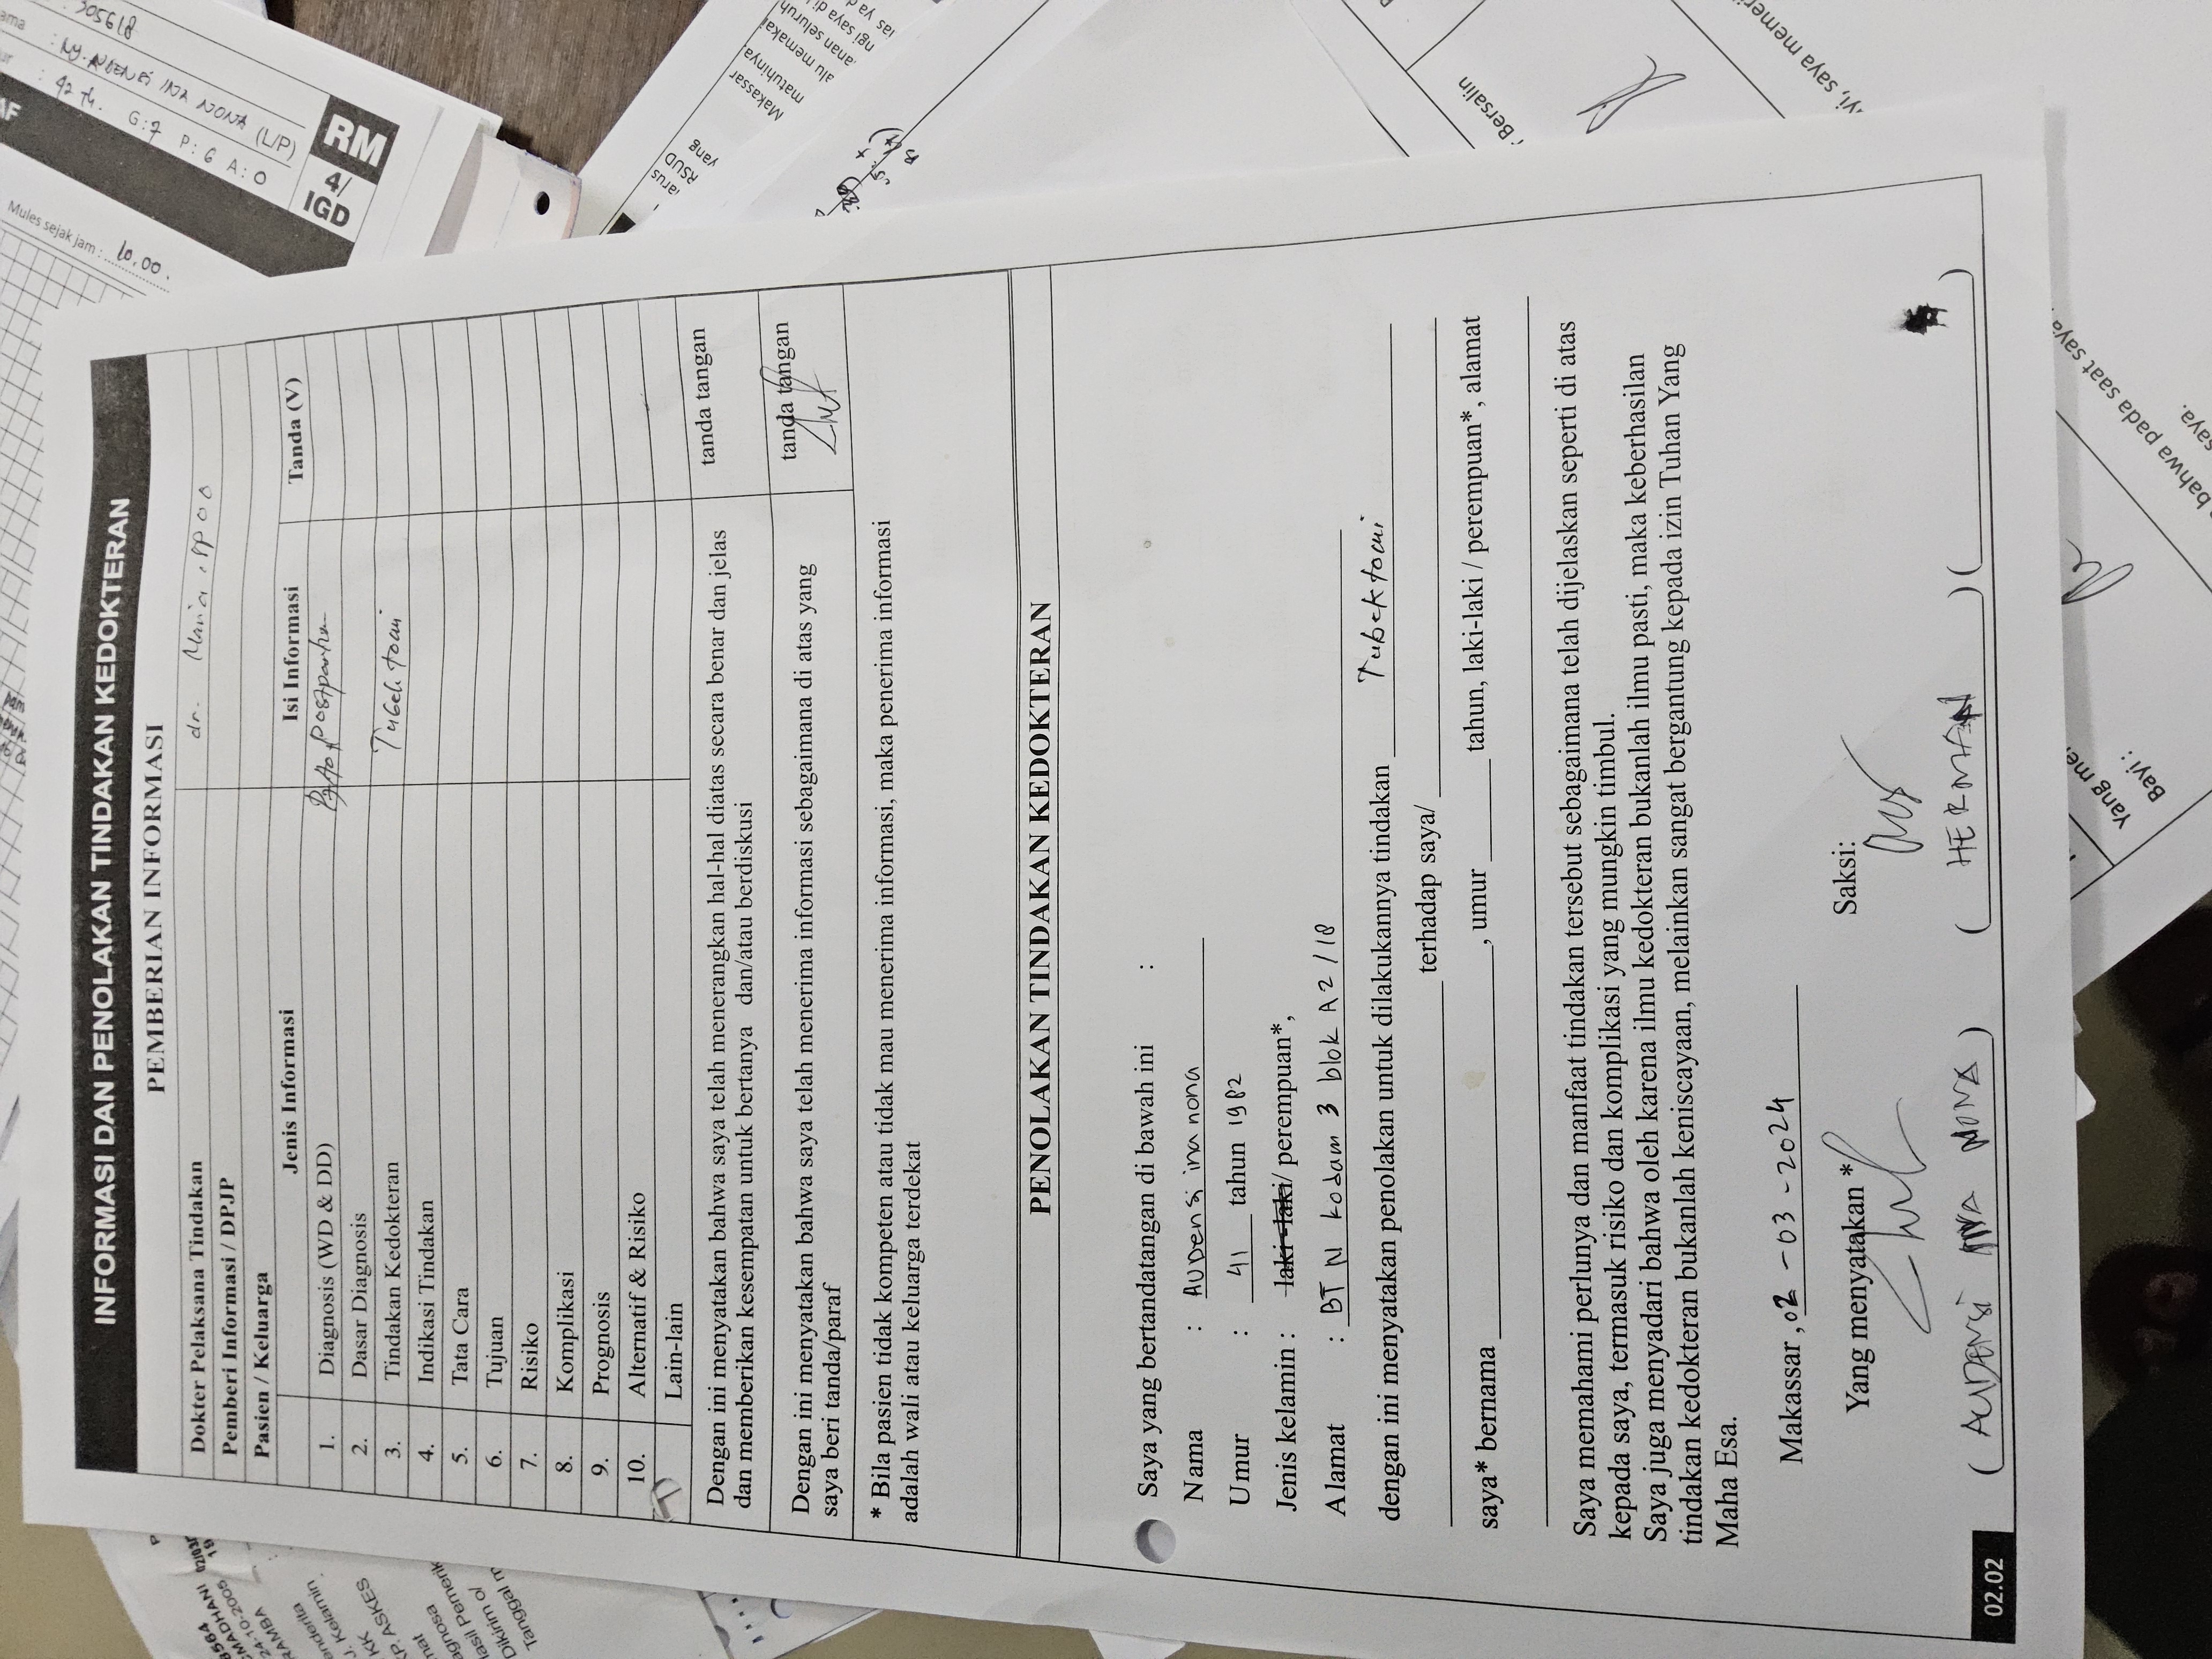 INFORMASI DAN PENOLAKAN TINDAKAN KEDOKTERAN
PEMBERIAN INFORMASI
Dokter Pelaksana Tindakan dr. Maria, SpOG
Pemberi Informasi / DPJP
Pasien / Keluarga
Jenis Informasi Isi Informasi Tanda (V)
1. Diagnosis (WD & DD) Postpartum
2. Dasar Diagnosis
3. Tindakan Kedokteran Tubektomi
4. Indikasi Tindakan
5. Tata Cara
6. Tujuan
7. Risiko
8. Komplikasi
9. Prognosis
10. Alternatif & Risiko
Lain-lain
Dengan ini menyatakan bahwa saya telah menerangkan hal-hal diatas secara benar dan jelas tanda tangan
dan memberikan kesempatan untuk bertanya dan/atau berdiskusi
Dengan ini menyatakan bahwa saya telah menerima informasi sebagaimana di atas yang tanda tangan
saya beri tanda/paraf
* Bila pasien tidak kompeten atau tidak mau menerima informasi, maka penerima informasi
adalah wali atau keluarga terdekat
PENOLAKAN TINDAKAN KEDOKTERAN
Saya yang bertandatangan di bawah ini :
Nama : AUDensi ina nona
Umur : 41 tahun 1982
Jenis kelamin : laki-laki/ perempuan*,
Alamat : BTN kodam 3 blok A2/18
dengan ini menyatakan penolakan untuk dilakukannya tindakan Tubektomi
terhadap saya/
saya* bernama , umur tahun, laki-laki / perempuan*, alamat
Saya memahami perlunya dan manfaat tindakan tersebut sebagaimana telah dijelaskan seperti di atas
kepada saya, termasuk risiko dan komplikasi yang mungkin timbul.
Saya juga menyadari bahwa oleh karena ilmu kedokteran bukanlah ilmu pasti, maka keberhasilan
tindakan kedokteran bukanlah keniscayaan, melainkan sangat bergantung kepada izin Tuhan Yang
Maha Esa.
Makassar, 02 - 03 - 2024
Yang menyatakan * Saksi:
( AUDENSI INA NONA ) ( HERMAN ) ( )
02.02
305618
NY. AUDENSI INA NONA (L/P)
42 th.
G:7 P:6 A:0
RM
4/
IGD
Mules sejak jam : 10.00.
RSUD
yang
Makassar
matuhinya
alu memakai
anan seluruh
ngi saya di
Bersalin
yi, saya memeri
bahwa pada saat saya
saya.
Yang me
Bayi :
MADHANI
24-10-2005
J. Kelamin
KK
P. ASKES
Dikirim o/
Tanggal